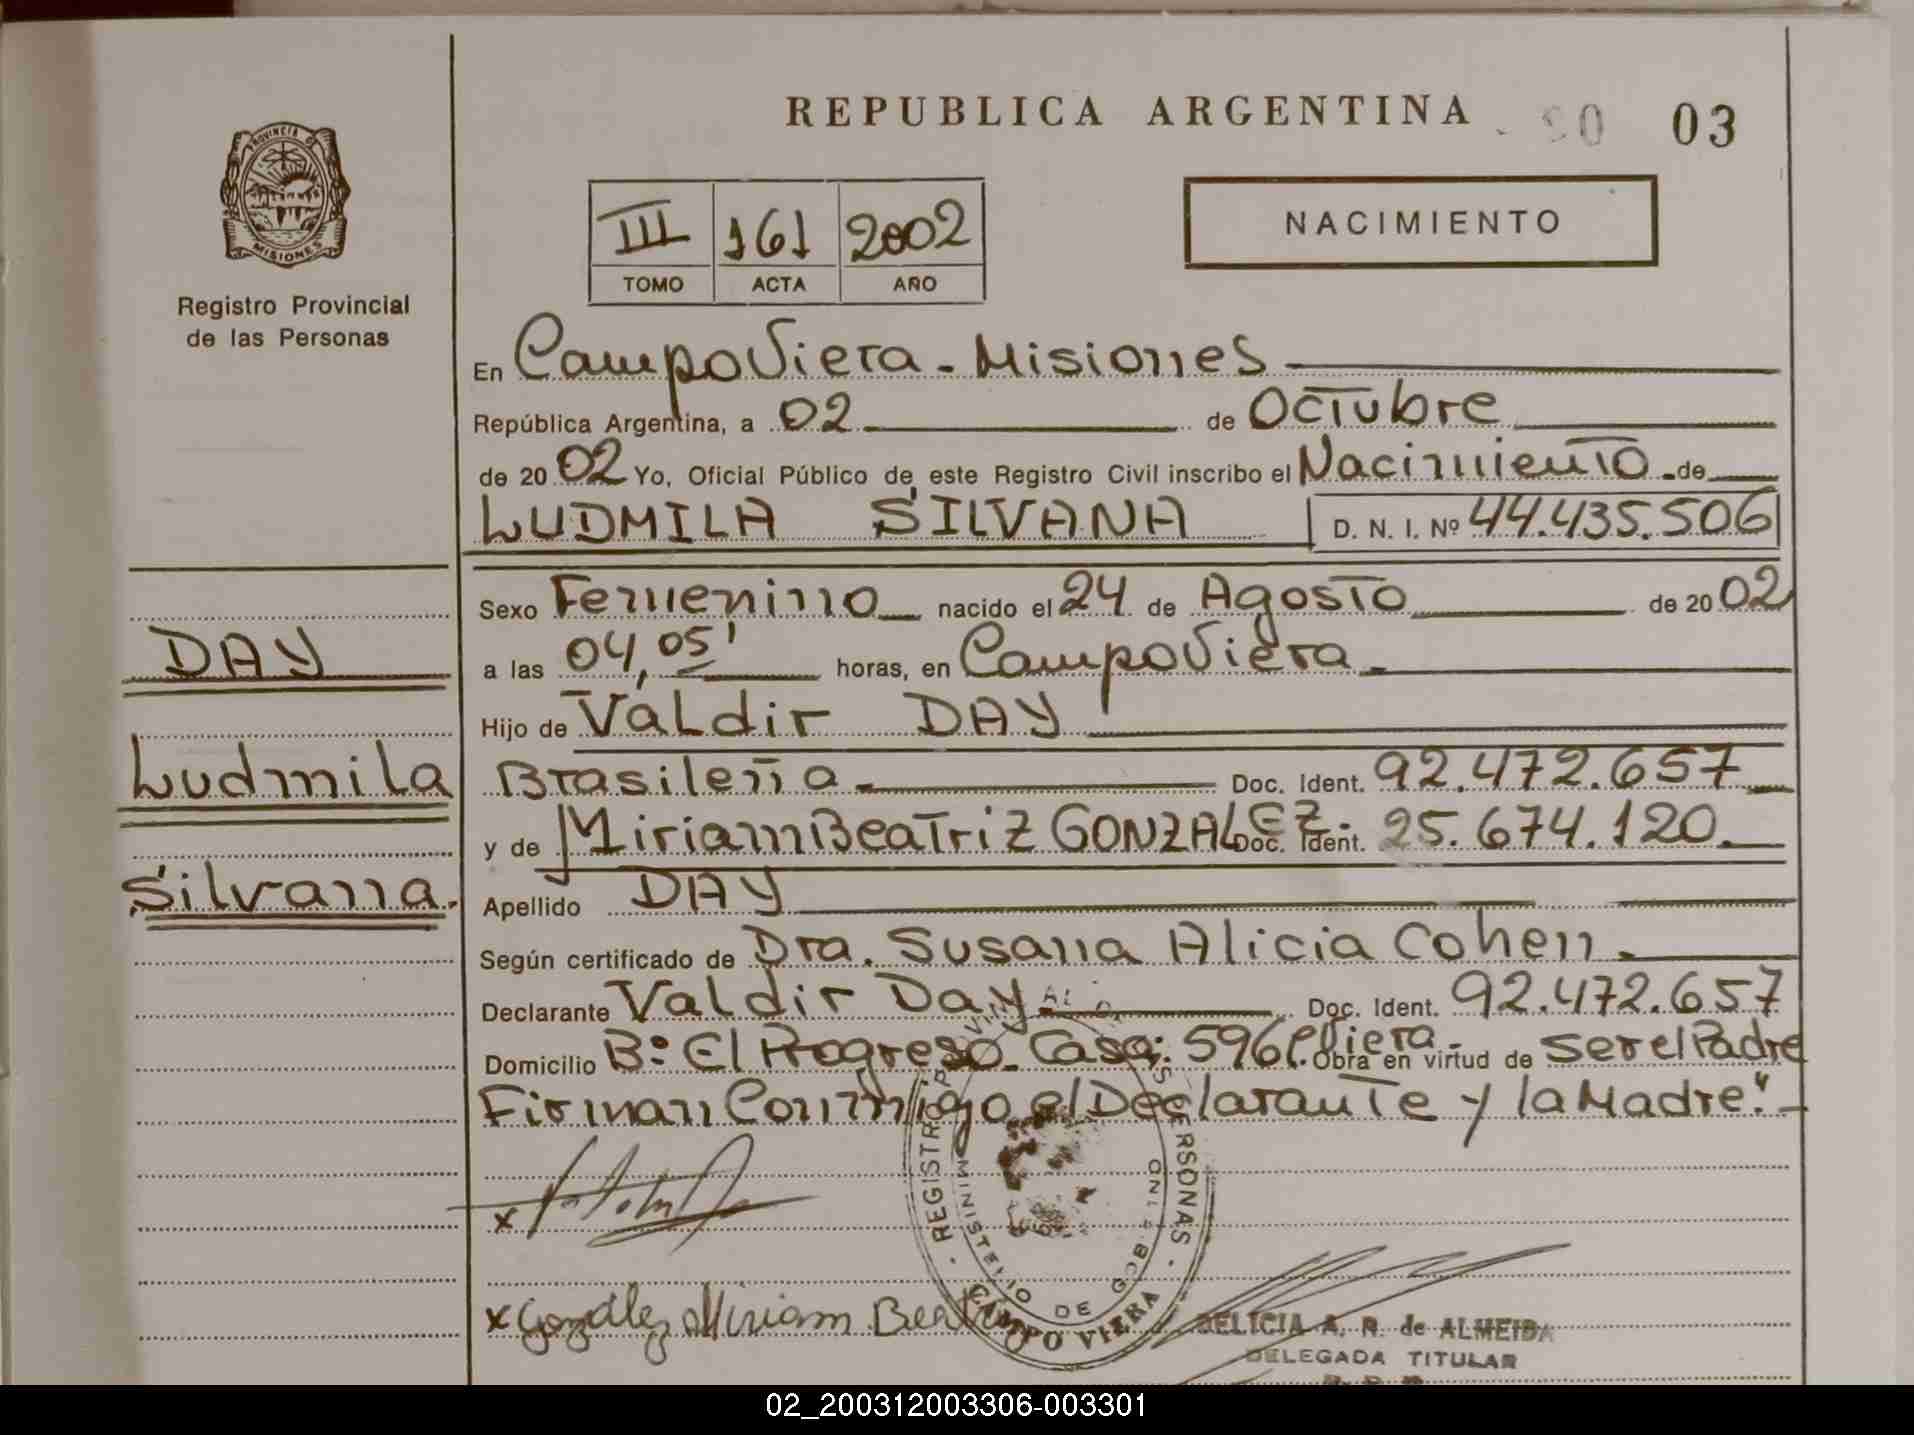 REPUBLICA ARGENTINA
03
PROVINCIA DE
MISIONES
Registro Provincial
de las Personas
III 161 2002
TOMO ACTA AÑO
NACIMIENTO
En Campo Viera - Misiones
República Argentina, a 02 de Octubre
de 2002 Yo, Oficial Público de este Registro Civil inscribo el Nacimiento de
LUDMILA SILVANA D. N. I. Nº 44.435.506
Sexo Femenino nacido el 24 de Agosto de 2002
a las 04,05' horas, en Campo Viera
Hijo de Valdir DAY
Brasileña Doc. Ident. 92.472.657
y de Miriam Beatriz GONZALEZ. Doc. Ident. 25.674.120.
Apellido DAY
Según certificado de Dra. Susana Alicia Cohen.
Declarante Valdir Day Doc. Ident. 92.472.657
Domicilio Bº El Progreso Casa: 596 C. Viera - Obra en virtud de ser el Padre
Firman Conmigo el Declarante y la Madre."
DAY
Ludmila
Silvana.
x
x González Miriam Beatriz
REGISTRO PROVINCIAL DE LAS PERSONAS
MINISTERIO DE GOB.
CAMPO VIERA
DELICIA A. R. de ALMEIDA
DELEGADA TITULAR
02_200312003306-003301